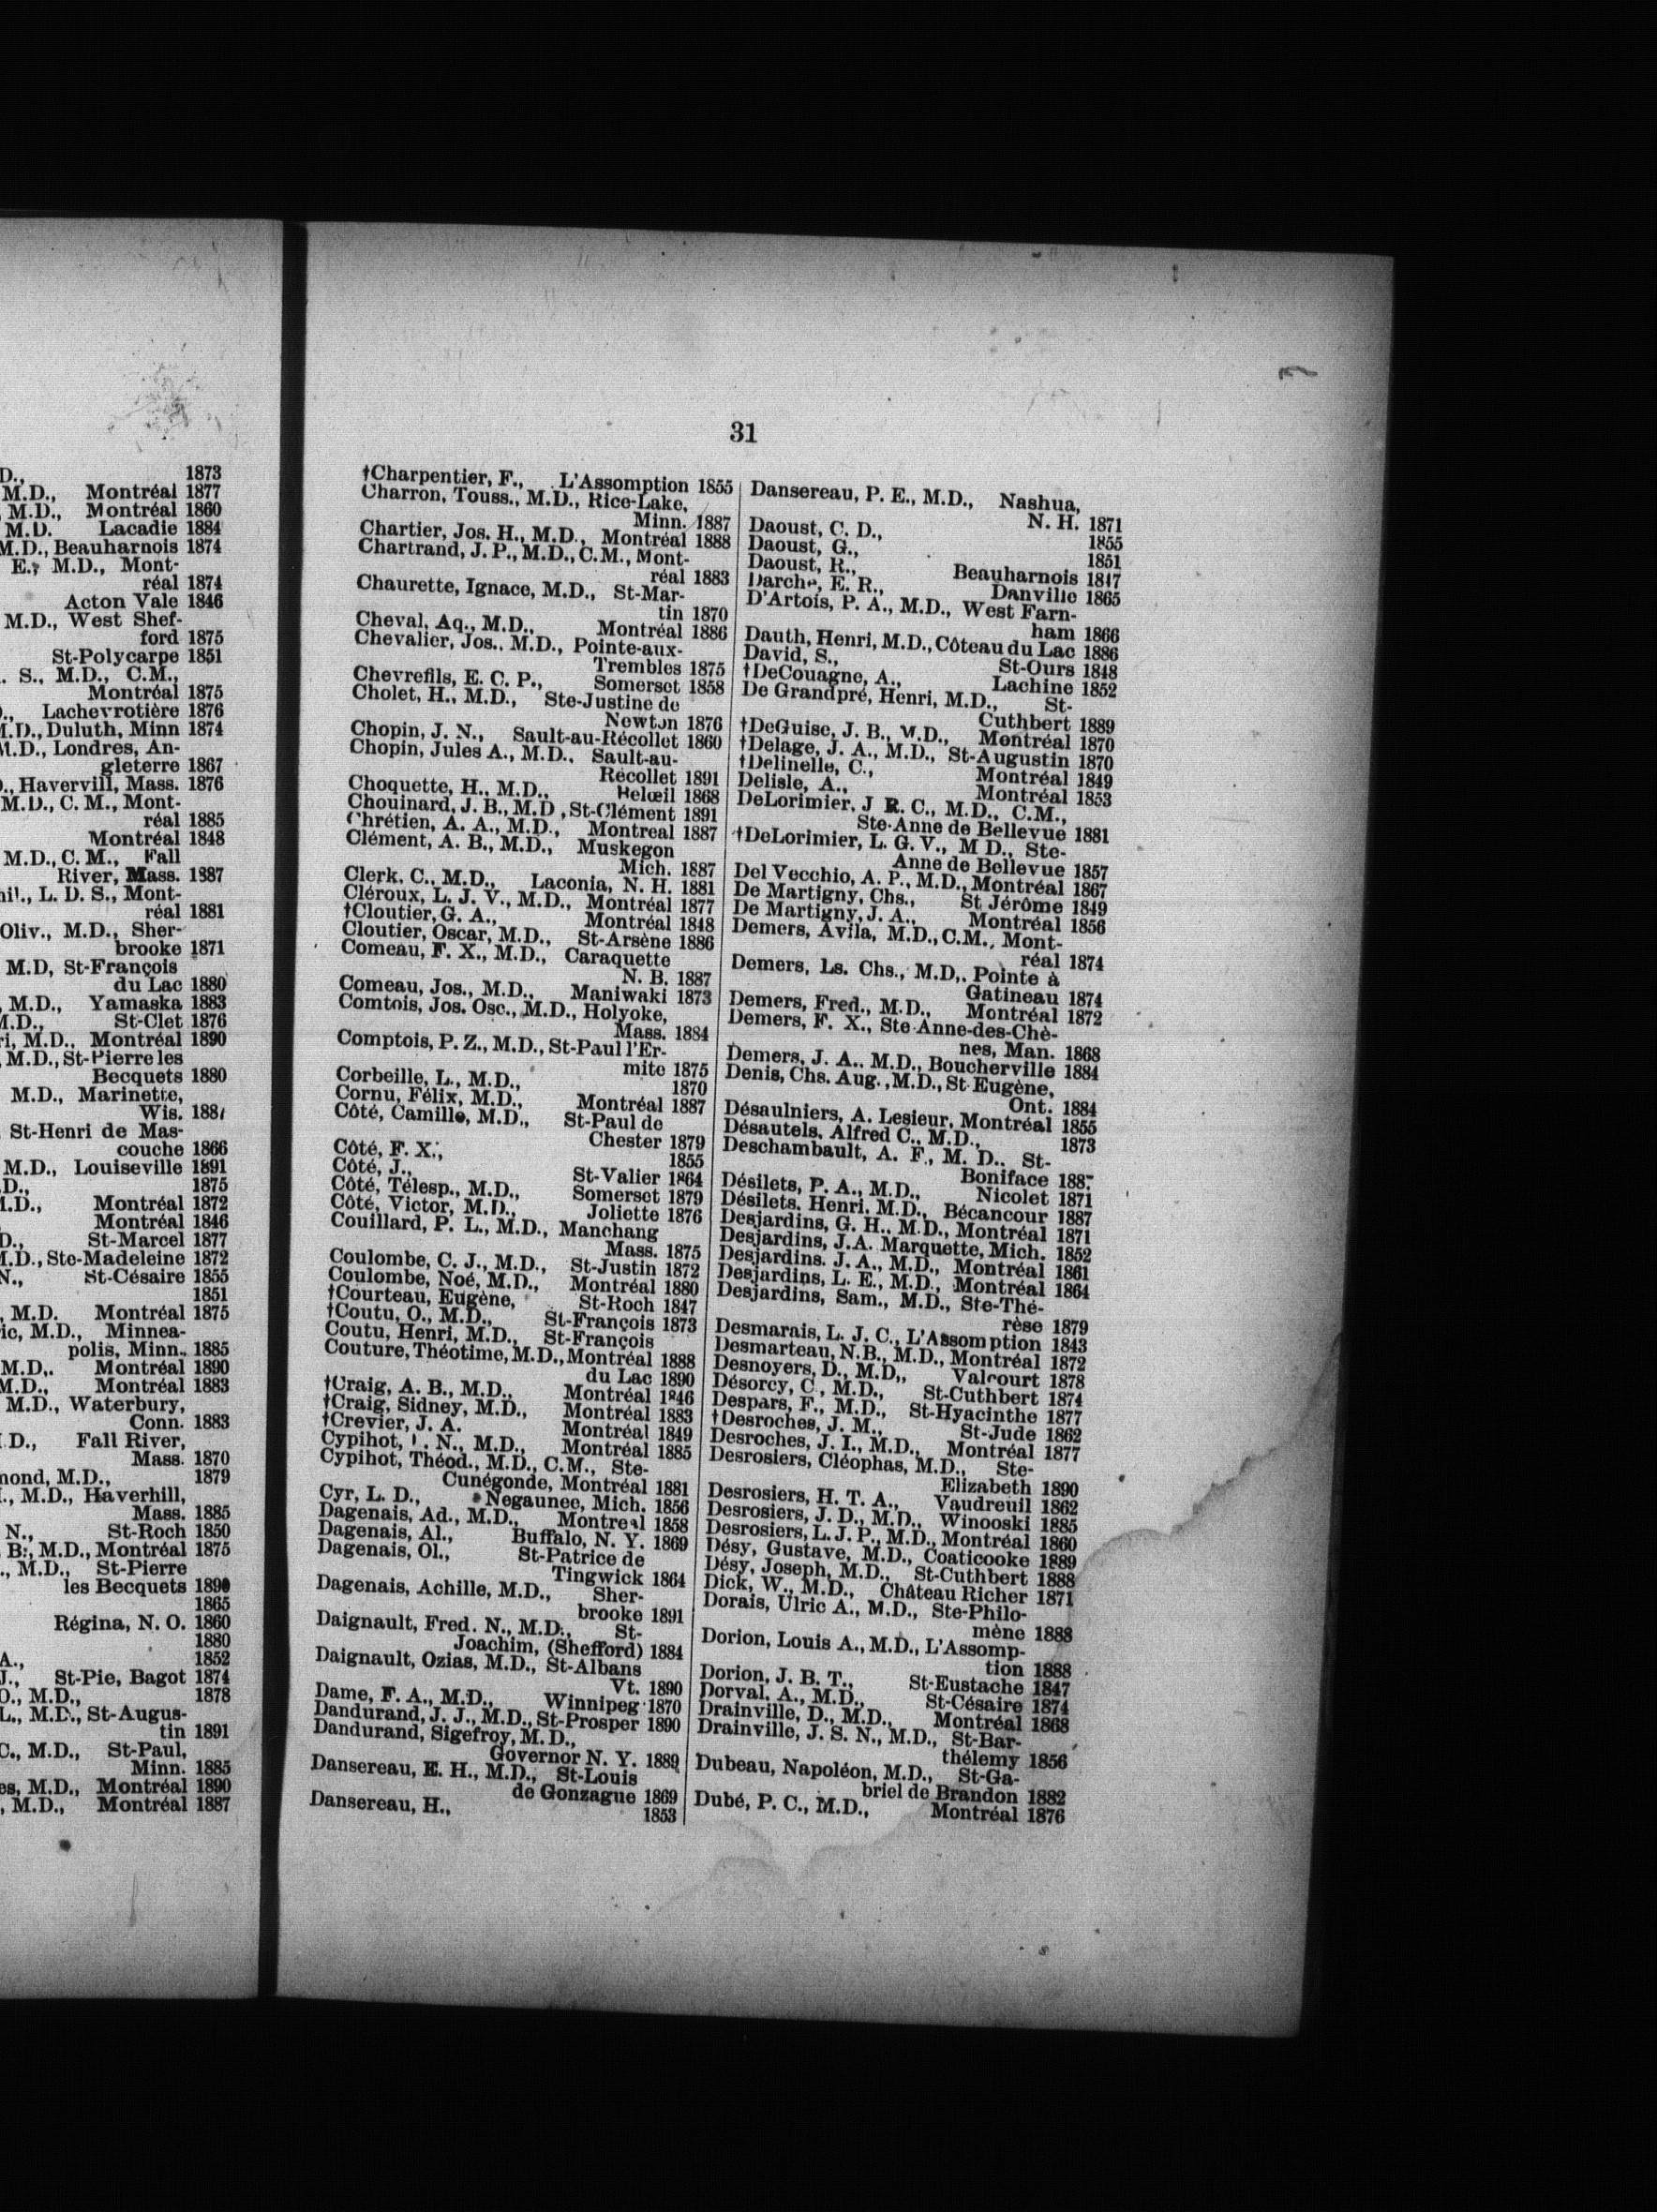 D., 1873
M.D., Montréal 1877
, M.D., Montréal 1860
M.D. Lacadie 1884
M.D., Beauharnois 1874
E., M.D., Mont-
réal 1874
Acton Vale 1846
M.D., West Shef-
ford 1875
St-Polycarpe 1851
. S., M.D., C.M.,
Montréal 1875
., Lachevrotière 1876
M.D., Duluth, Minn 1874
M.D., Londres, An-
gleterre 1867
., Havervill, Mass. 1876
M.D., C. M., Mont-
réal 1885
Montréal 1848
M.D., C. M., Fall
River, Mass. 1887
L. D. S., Mont-
réal 1881
Oliv., M.D., Sher-
brooke 1871
M.D, St-François
du Lac 1880
, M.D., Yamaska 1883
M.D., St-Clet 1876
ri, M.D., Montréal 1890
M.D., St-Pierre les
Becquets 1880
M.D., Marinette,
Wis. 188
St-Henri de Mas-
couche 1866
M.D., Louiseville 1891
D., 1875
M.D., Montréal 1872
Montréal 1846
D., St-Marcel 1877
M.D., Ste-Madeleine 1872
N., St-Césaire 1855
1851
, M.D. Montréal 1875
ric, M.D., Minnea-
polis, Minn. 1885
M.D.. Montréal 1890
M.D., Montréal 1883
M.D., Waterbury,
Conn. 1883
.D., Fall River,
Mass. 1870
mond, M.D., 1879
., M.D., Haverhill,
Mass. 1885
N., St-Roch 1850
B., M.D., Montréal 1875
., M.D., St-Pierre
les Becquets 1890
1865
Régina, N. O. 1860
1880
A., 1852
J., St-Pie, Bagot 1874
O., M.D., 1878
L., M.D., St-Augus-
tin 1891
C., M.D., St-Paul,
Minn. 1885
es, M.D., Montréal 1890
, M.D., Montréal 1887
31
†Charpentier, F., L'Assomption 1855
Charron, Touss., M.D., Rice-Lake,
Minn. 1887
Chartier, Jos. H., M.D., Montréal 1888
Chartrand, J. P., M.D., C.M., Mont-
réal 1883
Chaurette, Ignace, M.D., St-Mar-
tin 1870
Cheval, Aq., M.D., Montréal 1886
Chevalier, Jos.. M.D., Pointe-aux-
Trembles 1875
Chevrefils, E. C. P., Somerset 1858
Cholet, H., M.D., Ste-Justine de
Newton 1876
Chopin, J. N., Sault-au-Récollet 1860
Chopin, Jules A., M.D.. Sault-au-
Récollet 1891
Choquette, H., M.D., Belœil 1868
Chouinard, J. B., M.D , St-Clément 1891
Chrétien, A. A., M.D., Montreal 1887
Clément, A. B., M.D., Muskegon
Mich. 1887
Clerk. C., M.D., Laconia, N. H. 1881
Cléroux, L. J. V., M.D., Montréal 1877
†Cloutier, G. A., Montréal 1848
Cloutier, Oscar, M.D., St-Arsène 1886
Comeau, F. X., M.D., Caraquette
N. B. 1887
Comeau, Jos., M.D., Maniwaki 1873
Comtois, Jos. Osc., M.D., Holyoke,
Mass. 1884
Comptois, P. Z., M.D., St-Paul l'Er-
mite 1875
Corbeille, L., M.D., 1870
Cornu, Félix, M.D., Montréal 1887
Côté, Camille, M.D., St-Paul de
Chester 1879
Côté, F. X., 1855
Côté, J., St-Valier 1864
Côté, Télesp., M.D., Somerset 1879
Côté, Victor, M.D., Joliette 1876
Couillard, P. L., M.D., Manchang
Mass. 1875
Coulombe, C. J., M.D., St-Justin 1872
Coulombe, Noé, M.D., Montréal 1880
†Courteau, Eugène, St-Roch 1847
†Coutu, O., M.D., St-François 1873
Coutu, Henri, M.D., St-François
Couture, Théotime, M.D., Montréal 1888
du Lac 1890
†Craig, A. B., M.D., Montréal 1846
†Craig, Sidney, M.D., Montréal 1883
†Crevier, J. A. Montréal 1849
Cypihot, . N., M.D., Montréal 1885
Cypihot, Théod., M.D., C.M., Ste-
Cunégonde, Montréal 1881
Cyr, L. D., Negaunee, Mich. 1856
Dagenais, Ad., M.D., Montreal 1858
Dagenais, Al., Buffalo, N. Y. 1869
Dagenais, Ol., St-Patrice de
Tingwick 1864
Dagenais, Achille, M.D., Sher-
brooke 1891
Daignault, Fred. N., M.D., St-
Joachim, (Shefford) 1884
Daignault, Ozias, M.D., St-Albans
Vt. 1890
Dame, F. A., M.D., Winnipeg 1870
Dandurand, J. J., M.D., St-Prosper 1890
Dandurand, Sigefroy, M.D.,
Governor N. Y. 1889
Dansereau, E. H., M.D., St-Louis
de Gonzague 1869
Dansereau, H., 1853
Dansereau, P. E., M.D., Nashua,
N. H. 1871
Daoust, C. D., 1855
Daoust, G., 1851
Daoust, R., Beauharnois 1847
Darche, E. R., Danville 1865
D'Artois, P. A., M.D., West Farn-
ham 1866
Dauth, Henri, M.D., Côteau du Lac 1886
David, S., St-Ours 1848
†DeCouagne, A., Lachine 1852
De Grandpré, Henri, M.D., St-
Cuthbert 1889
†DeGuise, J. B., M.D., Montréal 1870
†Delage, J. A., M.D., St-Augustin 1870
†Delinelle, C., Montréal 1849
Delisle, A., Montréal 1853
DeLorimier, J R. C., M.D., C.M.,
Ste-Anne de Bellevue 1881
†DeLorimier, L. G. V., M D., Ste-
Anne de Bellevue 1857
Del Vecchio, A. P., M.D., Montréal 1867
De Martigny, Chs., St Jérôme 1849
De Martigny, J. A., Montréal 1856
Demers, Avila, M.D., C.M., Mont-
réal 1874
Demers, Ls. Chs., M.D,. Pointe à
Gatineau 1874
Demers, Fred., M.D., Montréal 1872
Demers, F. X., Ste-Anne-des-Chè-
nes, Man. 1868
Demers, J. A.. M.D., Boucherville 1884
Denis, Chs. Aug., M.D., St-Eugène,
Ont. 1884
Désaulniers, A. Lesieur, Montréal 1855
Désautels, Alfred C., M.D., 1873
Deschambault, A. F., M. D.. St-
Boniface 188
Désilets, P. A., M.D., Nicolet 1871
Désilets, Henri, M.D., Bécancour 1887
Desjardins, G. H., M.D., Montréal 1871
Desjardins, J.A. Marquette, Mich. 1852
Desjardins. J. A., M.D., Montréal 1861
Desjardins, L. E., M.D., Montréal 1864
Desjardins, Sam., M.D., Ste-Thé-
rèse 1879
Desmarais, L. J. C., L'Assomption 1843
Desmarteau, N.B., M.D., Montréal 1872
Desnoyers, D., M.D,, Valcourt 1878
Désorcy, C , M.D., St-Cuthbert 1874
Despars, F., M.D., St-Hyacinthe 1877
†Desroches, J. M., St-Jude 1862
Desroches, J. I., M.D., Montréal 1877
Desrosiers, Cléophas, M.D., Ste-
Elizabeth 1890
Desrosiers, H. T. A., Vaudreuil 1862
Desrosiers, J. D., M.D., Winooski 1885
Desrosiers, L. J. P., M.D., Montréal 1860
Désy, Gustave, M.D., Coaticooke 1889
Désy, Joseph, M.D., St-Cuthbert 1888
Dick, W., M.D., Château Richer 1871
Dorais, Ulric A., M.D., Ste-Philo-
mène 1888
Dorion, Louis A., M.D., L'Assomp-
tion 1888
Dorion, J. B. T., St-Eustache 1847
Dorval. A., M.D., St-Césaire 1874
Drainville, D., M.D., Montréal 1868
Drainville, J. S. N., M.D., St-Bar-
thélemy 1856
Dubeau, Napoléon, M.D., St-Ga-
briel de Brandon 1882
Dubé, P. C., M.D., Montréal 1876